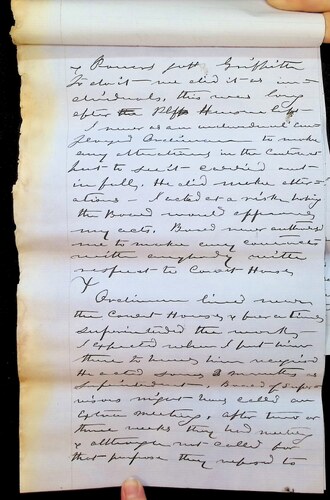 & Powers got Griffith
to do it - we did it as in-
dividuals, this was long
after the Plff Hansone left -
I never as an individual em-
ployed Ordiman to make
any alterations in the Contract
but to see it carried out
in full. He did make alter-
ations - I acted at a risk, hoping
the Board would approve
my acts. Board never authorized
me to make any contract
with anybody with
respect to Court House
X
Ordiman lived near
the Court House & for a time
superintended the work -
I expected when I put him
there to have him recognized
He acted some 2 months as
Superintendent. Board of Super-
visors might have called an
extra meeting, after two or
three weeks they had meeting
& although not called for
that purpose they refused to